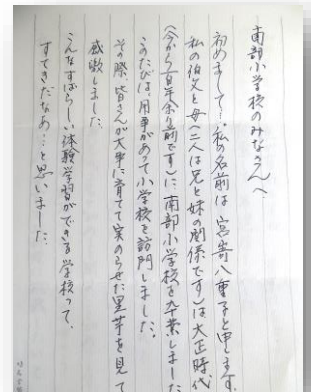 南部小学校のみなさんへ
初めまして…私の名前は 宮嵜八重子と申します。
私の伯父と母(二人は兄と妹の関係です)は大正時代
(今から百年余り前です)に、南部小学校を卒業しました
このたびは、用事があって小学校を訪問しました。
その際、皆さんが大事に育てて実のらせた里芋を見て
感激しました。
こんなすばらしい体験学習ができる学校って、
すてきだなあ…と思いました。